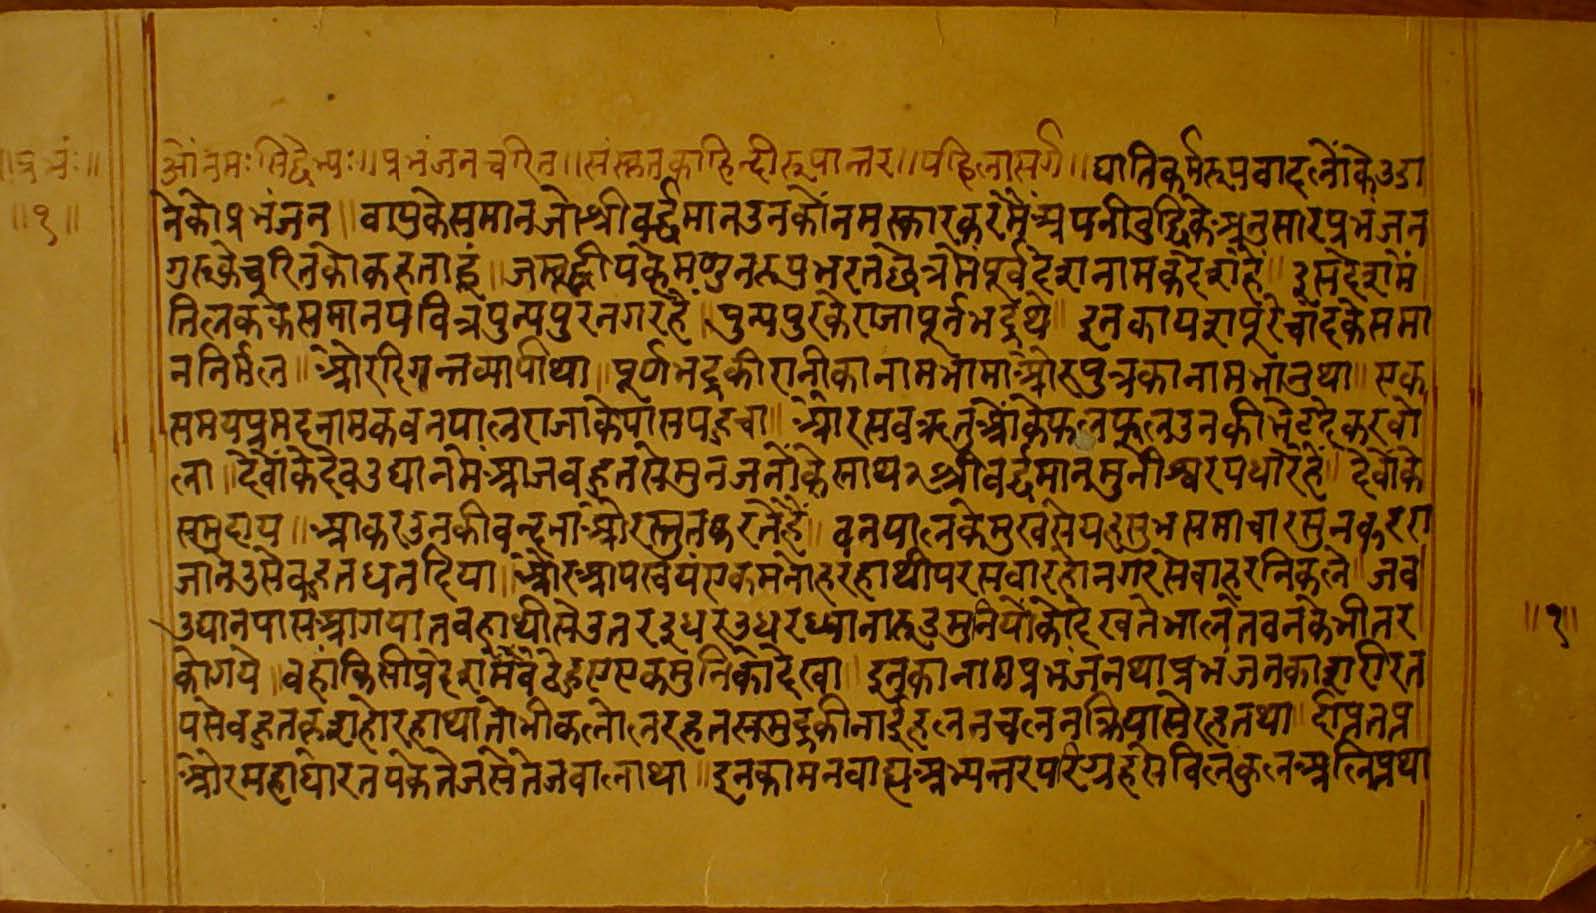 प्रभंः॥
॥१॥
ओं नमः सिद्धेभ्यः॥ प्रभंजनचरित॥ संस्कृतका हिन्दी रूपान्तर॥ पहिला सर्ग॥ घातिकर्मरूप वादलोंके उडा
नेको प्रभंजन॥ वायुके समान जो श्रीवर्द्धमान उनको नमस्कारकर मैं अपनी वुद्धिके अनुसार प्रभंजन
गुरुके चरितको कहता हूं॥ जम्बूद्वीपके मण्डनरूप भरतछेत्रमें पूर्वदेश नामक देश है॥ इस देशमें
तिलकके समान पवित्र पुन्यपुर नगर है॥ पुन्यपुरके राजा पूर्नभद्र थे॥ इनका यश पूरे चांदके समा
न निर्मल॥ और दिगन्तव्यापी था॥ पूर्णभद्रकी रानीका नाम भामा और पुत्रका नाम भानु था॥ एक
समय प्रमद नामक वनपाल राजाके पास पहुचा॥ और सव ऋतुओंके फलफूल उनकी भेट देकर वो
ला॥ देवोंके देव उद्यानमें आज वहुतसे मुनजनोंके साथ २ श्रीवर्द्धमान मुनीश्वर पधारे हैं॥ देवोंके
समुदाय॥ आकर उनकी वन्दना और स्तुत करते हैं॥ वनपालके मुखसे यह सुभ समाचार सुनकर रा
जाने उसे वहुत धन दिया॥ और आप स्वयं एक मनोहर हाथीपर सवार हो नगरसे वाहर निकले॥ जव
उद्यान पास आगया तव हाथीसे उतर इधर उधर ध्यानारूड मुनियोंको देखते भालते वनके भीतर
को गये॥ वहां किसी प्रदेशमें वैठे हुए एक मुनिको देखा॥ इनका नाम प्रभंजन था प्रभंजनका शरीर त
पसे वहुत कृश हो रहा था तोभी कलोल रहत समुद्रकी नाई हलन चलन क्रियासे रहत था॥ दीप्ततप्त
और महाघोर तपके तेजसे तेजवाला था॥ इनका मन वाह्य अभ्यन्तर परिग्रहसे विलकुल अलिप्त था
॥१॥